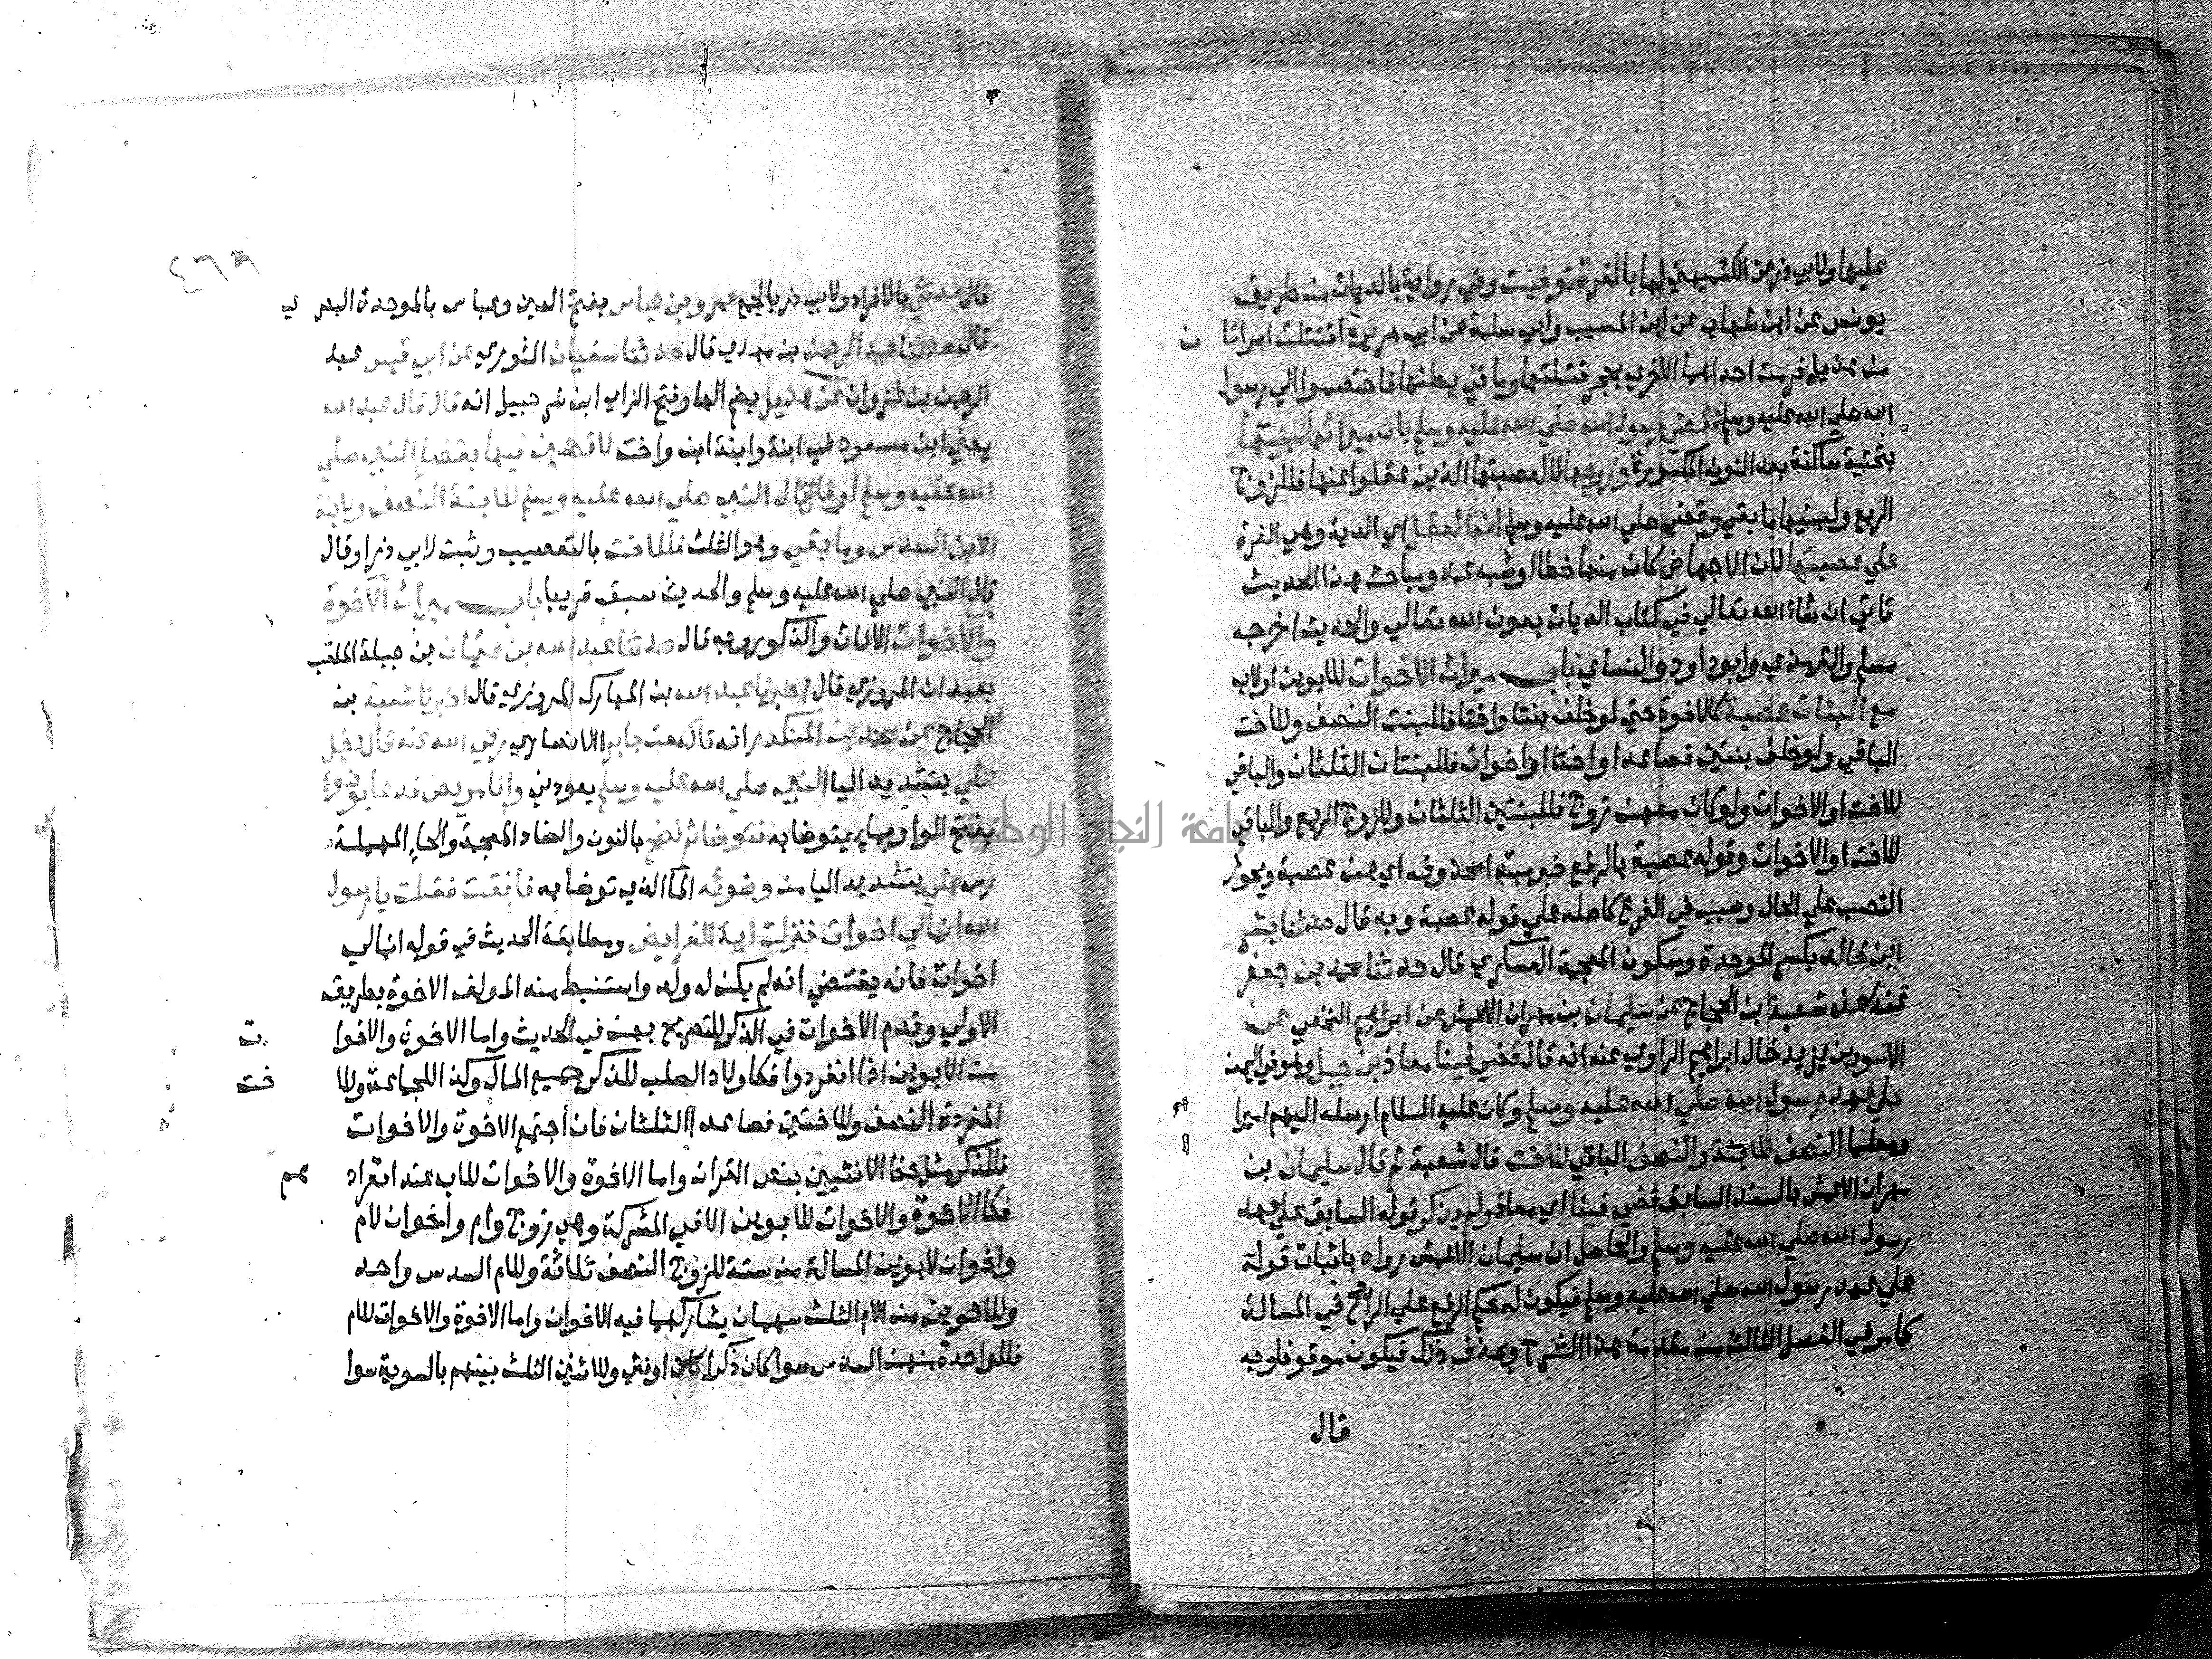 عليها ولابي ذر عن الكشميهني لها بالغرة توفيت وفي رواية بالديات من طريق
يونس عن ابن شهاب عن ابن المسيب وابي سلمة عن ابي هريرة اقتتلت امراتا ن
من هذيل فرمت احداهما الاخري بحجر قتلتها وما في بطنها فاختصموا الي رسول
الله صلي الله عليه وسلم فقضي رسول الله صلي الله عليه وسلم بان ميراثها لبنيها
بتحتية ساكنة بعد النون المكسورة وزوجها لا لعصبتها الذين عقلوا عنها فللزوج
الربع ولبنيها ما بقي وقضي صلي الله عليه وسلم ان العقل اي الدية وهي الغرة
علي عصبتها لان الاجهاض كان منها خطا او شبه عمد ومباحث هذا الحديث
تاتي ان شاء الله تعالي في كتاب الديات بعون الله تعالي والحديث اخرجه
مسلم والترمذي وابو داود والنساي باب ميراث الاخوات للابوين او لاب
مع البنات عصبة كالاخوة حتي لو خلف بنتا واختا فللبنت النصف وللاخت
الباقي ولو خلف بنتين فصاعدا واختا او اخوات فللبنتان الثلثان والباقي
للاخت او الاخوات ولو كان معهن زوج فللبنتين الثلثان وللزوج الربع والباقي
للاخت او الاخوات وقوله عصبة بالرفع خبر مبتدا محذوف اي هن عصبة ويجوز
النصب علي الحال وصبب في الفرع كاصله علي قوله عصبة وبه قال حدثنا بشر
ابن خالد بكسر الموحدة وسكون المعجمة العسكري قال حدثنا محمد بن جعفر
غندر عن شعبة بن الحجاج عن سليمان بن مهران الاعمش عن ابراهيم النخعي عن
الاسود بن يزيد خال ابراهيم الراوي عنه انه قال قضي فينا معاذ بن جبل ونحن في اليمن
علي عهد رسول الله صلي الله عليه وسلم وكان عليه السلام ارسله اليهم اميرا
ومعلما النصف للابنة والنصف الباقي للاخت قال شعبة ثم قال سليمان بن
مهران الاعمش بالسند السابق قضي فينا اي معاذ ولم يذكر قوله السابق علي عهد
رسول الله صلي الله عليه وسلم والحاصل ان سليمان الاعمش رواه باثبات قوله
علي عهد رسول الله صلي الله عليه وسلم فيكون له حكم الرفع علي الراجح في المسالة
كما مر في الفصل الثالث من مقدمة هذا الشرح وبحذف ذلك فيكون موقوفا وبه
قال
٤٦٨
قال حدثني بالافراد ولابي ذر بالجمع عمرو بن عباس بفتح العين وعباس بالموحدة البصر ي
قال حدثنا عبد الرحمن بن مهدي قال حدثنا سفيان الثوري عن ابي قيس عبد
الرحمن بن غزوان عن هذيل بضم الها وفتح الزاي ابن شرحبيل انه قال قال عبد الله
يعني ابن مسعود في ابنة وابنة ابن واخت لاقضين فيها بقضا النبي صلي
الله عليه وسلم او قال قال النبي صلي الله عليه وسلم للابنة النصف ولابنة
الابن السدس وما بقي وهو الثلث فللاخت بالتعصيب وثبت لابي ذر او قال
قال النبي صلي الله عليه وسلم والحديث سبق قريبا باب ميراث الاخوة
والاخوات الاناث والذكور وبه قال حدثنا عبد الله بن عثمان بن جبلة الملقب
بعبدان المروزي قال اخبرنا عبد الله بن المبارك المروزي قال اخبرنا شعبة بن
الحجاج عن محمد بن المنكدر انه قال سمعت جابر الانصاري رضي الله عنه قال دخل
علي بتشديد اليا النبي صلي الله عليه وسلم يعودني وانا مريض فدعا بوضوء
بفتح الواو بماء يتوضا به فتوضا ثم نضح بالنون والضاد المعجمة والحاء المهملة
رش علي بتشديد اليا من وضوئه الما الذي توضا به فافقت فقلت يا رسول
الله انما لي اخوات فنزلت اية الفرايض ومطابقة الحديث في قوله انما لي
اخوات فانه يقتضي انه لم يكن له ولد واستنبط منه المولف الاخوة بطريق
الاولي وقدم الاخوات في الذكر للتصريح بهن في الحديث واما الاخوة والاخوا ت
من الابوين اذا انفردوا فكاولاد الصلب للذكر جميع المال وكذا للجماعة وللا خت
المفردة النصف وللاختين فصاعدا الثلثان فان اجتمع الاخوة والاخوات
فللذكر مثل حظ الانثيين بنص القران واما الاخوة والاخوات للاب عند انفراد هم
فكالاخوة والاخوات للابوين الا في المشركة وهي زوج وام واخوان لام
واخوان لابوين المسالة من ستة للزوج النصف ثلاثة وللام السدس واحد
وللاخوين من الام الثلث سهمان يشاركهما فيه الاخوان واما الاخوة والاخوات للام
فللواحدة منهن السدس سوا كان ذكرا كان او نثي وللاثنين الثلث بينهم بالسوية سوا
جامعة النجاح الوطنية